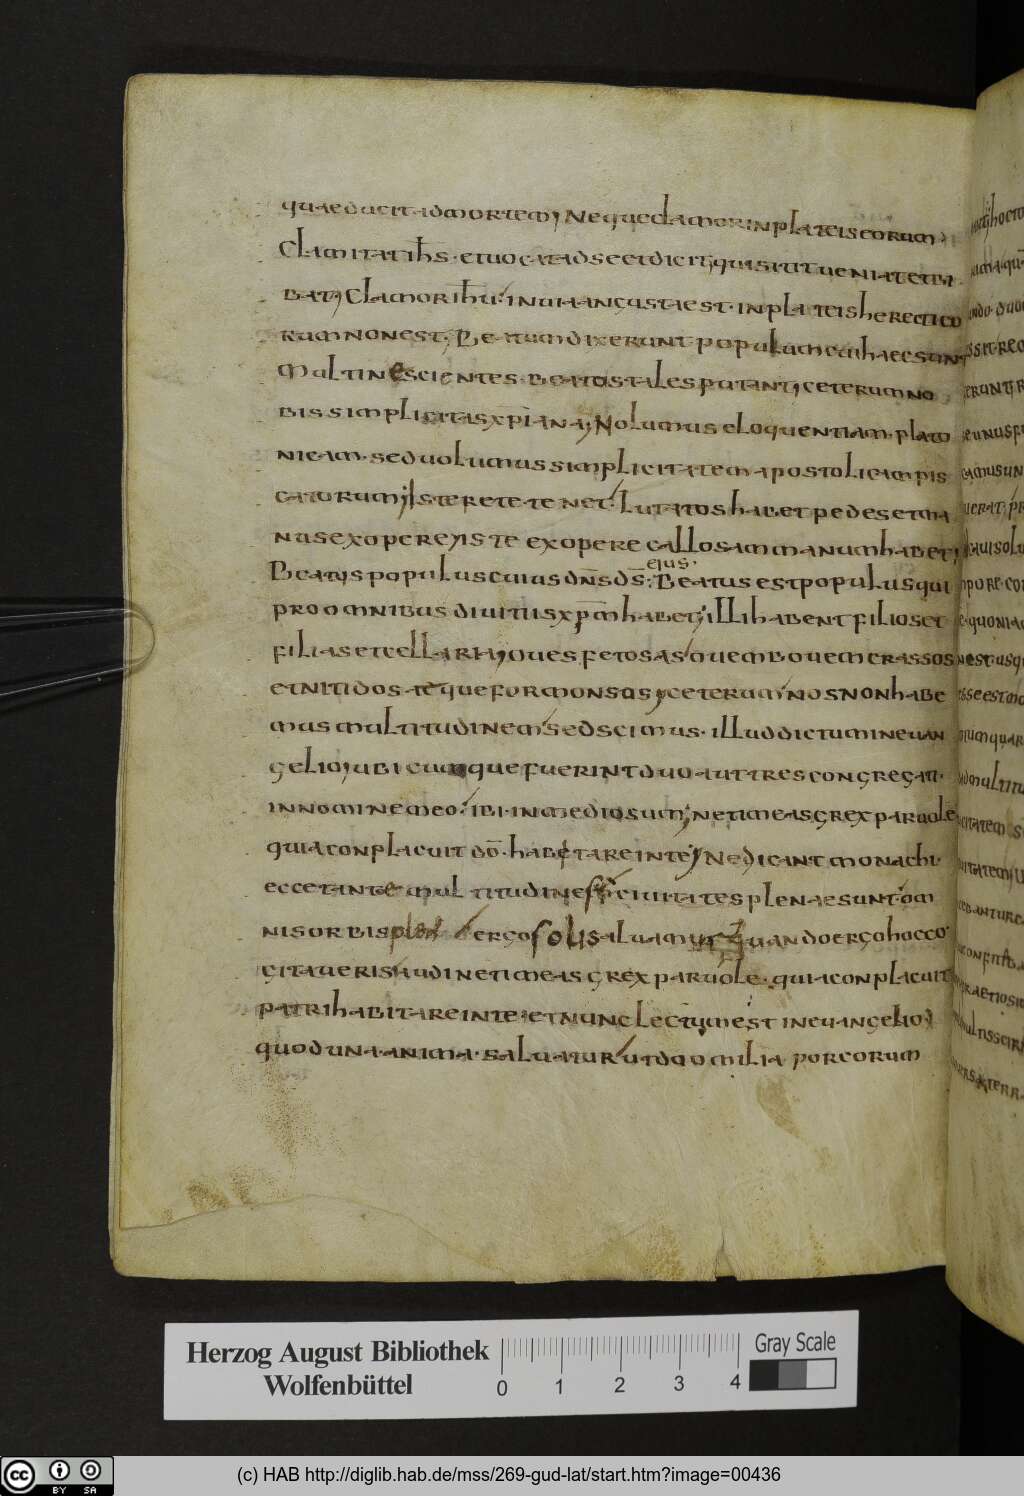 quae ducit ad mortem; Neque clamor in plateis eorum;
Clamitat ihs. et uocat ad se et dicit; qui sitit ueniat et bi
bat; Clamor ihu in uia angusta est. in plateis hereticu
rum non est; Beatum dixerunt populum cui haec sunt;
Multi nescientes. beatos tales putant; ceterum no
bis simplicitas xpiana; Nolumus eloquentiam. plato
nicam. sed uolumus simplicitatem apostolicam pis
catorum; Iste rete tenet. lutatos habet pedes et ma
nus ex opere; iste ex opere callosam manum habet;
ejus.
Beatus populus cuius dns ds. Beatus est populus qui
pro omnibus diuitiis xpm habet; illi habent filios et
filias et cellaria; oues fetosas ouem bouem crassos
et nitidos. atque formonsos; ceterum nos non habe
mus multitudinem sed scimus. illud dictum in euan
gelio; ubicumque fuerint duo aut tres congregati.
in nomine meo. ibi. in medio sum; ne timeas grex paruole
quia conplacuit do. habitare in te; Nedicant monachi.
ecce tante multitudines ciuitates plenae sunt. om
nis orbis ergo solis aluamur Quando ergo hoc co
gitaueris audi ne timeas grex paruole. quia conplacuit
patri habitare in te et nunc lectum est in euangelio;
quod una anima. saluatur ut duo milia porcorum
Herzog August Bibliothek
Wolfenbüttel
0 1 2 3 4
Gray Scale
cc BY SA
(c) HAB http://diglib.hab.de/mss/269-gud-lat/start.htm?image=00436